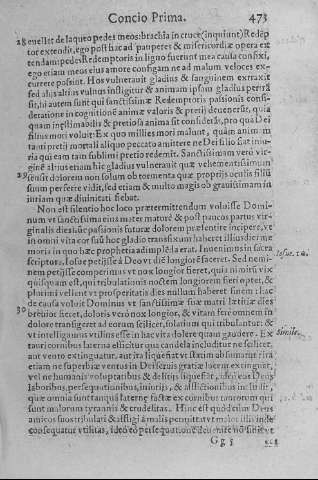 Concio Prima. 473
28 euellet de laqueo pedes meos: brachia in cruce (inquiunt) Redẽp
tor extendit, ego post hac ad pauperes & misericordiæ opera ext
tendam: pedes Redemptoris in ligno fuerunt mea causa confixi,
ego etiam meos eius amore configam ne ad malum veloces ex-
currere possint. Hos vulnerauit gladius & sanguinem extraxit
sed alius altius vulnus infligitur & animam ipsum gladius pertrã
sit, hi autem sunt qui sanctissimæ Redemptoris passionis consi-
deratione in cognitionẽ animæ valoris & pretij deuenerũt, quia
quam inestimabilis & pretiosa anima sit considerãt, pro qua Dei
filius mori voluit: Ex quo millies mori malunt, quàm animam
tanti pretij mortali aliquo peccato amittere ne Dei filio sat iniu-
ria qui eam tam sublimi pretio redemit. Sanctissimam verò vir-
ginẽ altius etiam hic gladius vulnerauit quæ vehementissimum
29 sensit dolorem non solum ob tormenta quæ proprijs oculis filiũ
suum perferre vidit, sed etiam & multo magis ob grauissimam in
iuriam quæ diuinitati fiebat.
Non est silentio hoc loco prætermittendum voluisse Domi-
num vt sanctissima eius mater maturè & post paucos partus vir-
ginalis dies huc passionis futuræ dolorem præsentire incipere, vt
in omni vita cor suũ hoc gladio transfixum haberet illiusque me
moria in quo hæc prophetia adimplẽda erat. Inuenimus in sacra
scriptura, Iosue petijsse à Deo vt diẽ longiorẽ faceret. Sed nemi-
nem petijsse comperimus vt nox longior fieret, quia nimis vix
quisquam est, qui tribulationis noctem longiorem fieri optet, &
plurimi vellent vt prosperitatis dies nullum haberet finem: hac
de causa voluit Dominus vt sanctissimæ suæ matri lætitiæ dies
30 breuior fieret, doloris vero nox longior, & vitam ferè omnem in
dolore transigeret ad eorum scilicet, solatium qui tribulantur: &
vt intelligamus vtilius esse in hac vita dolere quàm gaudere. Ex
tauri cornibus laterna efficitur qua candela includitur ne scilicet,
aut vento extinguatur, aut ita liquefiat vt statim absumatur: ita
etiam ne superbiæ ventus in Dei seruis gratiæ lucem extinguat,
vel ne humanis voluptatibus & delitijs liquefiat, ideò eos Deus
laboribus, persequutionibus, iniurijs, & afflictionibus includit,
quæ omnia sunt tanquã laternę factæ ex cornibus taurorum qui
sunt malorum tyrannis & crudelitas. Hinc est quòd cùm Deus
amicos suos tribulari & affligi à malis permittat vt maior illis inde
consequatur vtilitas, ideò eo persequutionẽ deuenire nõ sinit vt
Iosue. 10.
Simile.
Gg 5